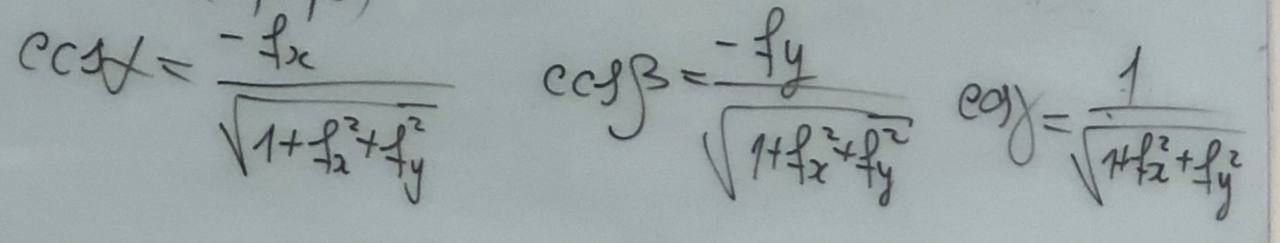 cos α = -fx / √(1+fx²+fy²) cos β = -fy / √(1+fx²+fy²) cos γ = 1 / √(1+fx²+fy²)